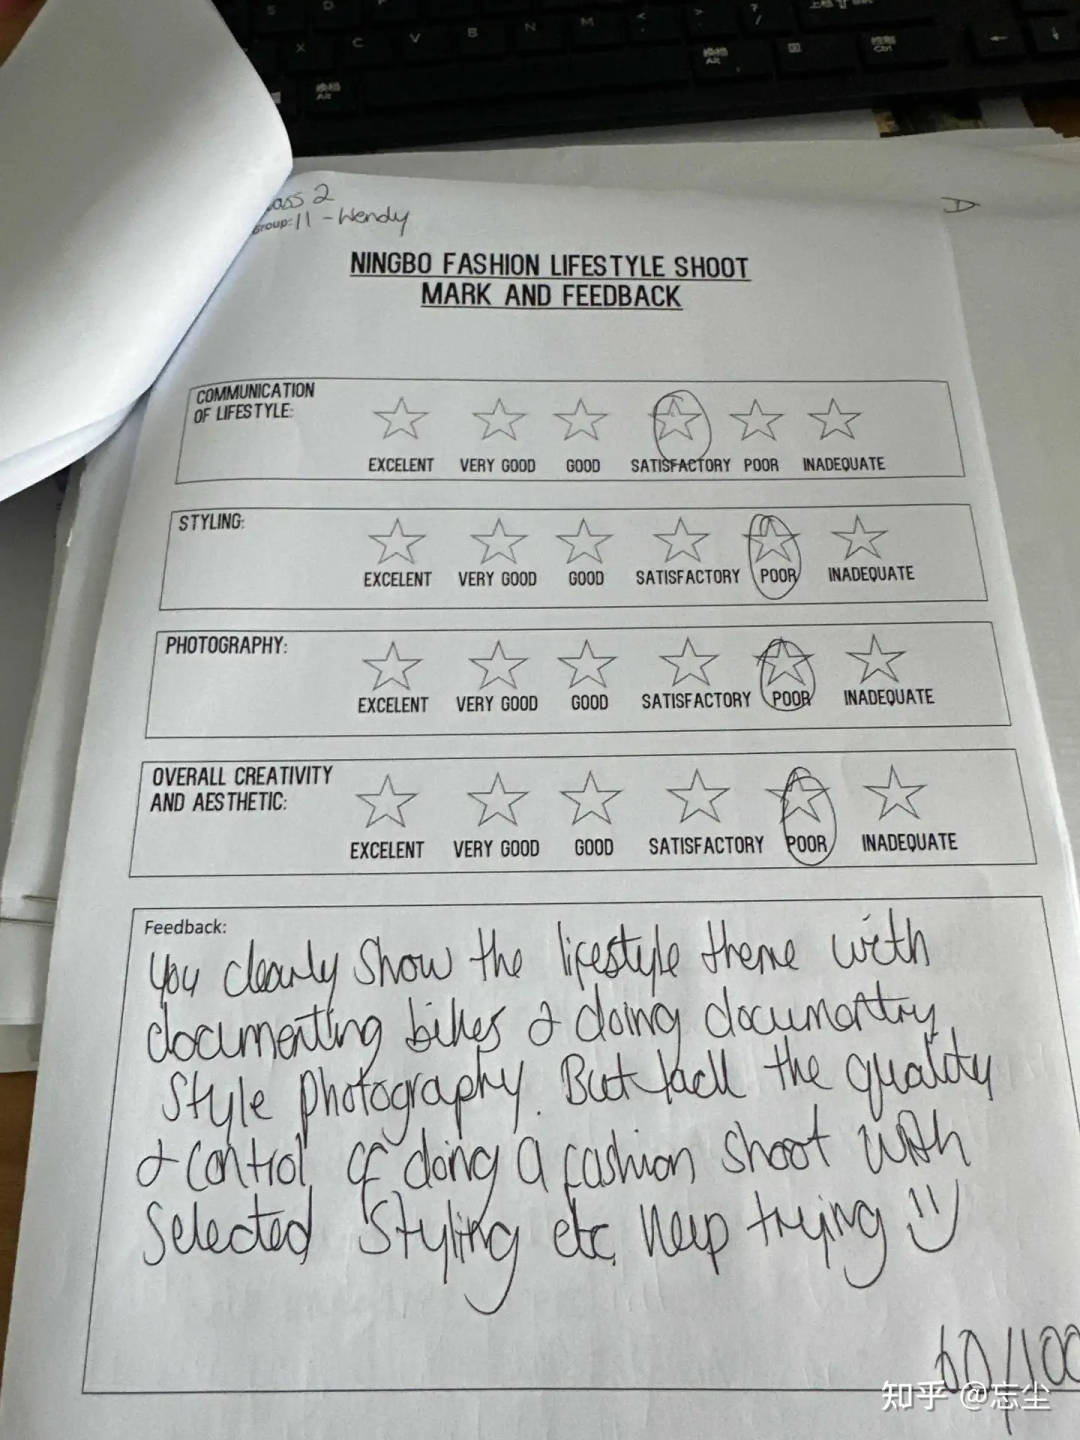 S D
X C V B N M < > ?
/
Alt
Alt
Ctrl
ass 2
Group: 11 - Wendy
D
NINGBO FASHION LIFESTYLE SHOOT
MARK AND FEEDBACK
COMMUNICATION
OF LIFESTYLE:
EXCELENT VERY GOOD GOOD SATISFACTORY POOR INADEQUATE
STYLING:
EXCELENT VERY GOOD GOOD SATISFACTORY POOR INADEQUATE
PHOTOGRAPHY:
EXCELENT VERY GOOD GOOD SATISFACTORY POOR INADEQUATE
OVERALL CREATIVITY
AND AESTHETIC:
EXCELENT VERY GOOD GOOD SATISFACTORY POOR INADEQUATE
Feedback:
You clearly show the lifestyle theme with
documenting bikes & doing documentry
style photography. But lack the quality
& control of doing a fashion shoot with
selected styling etc. Keep trying
60/100
知乎 @忘尘